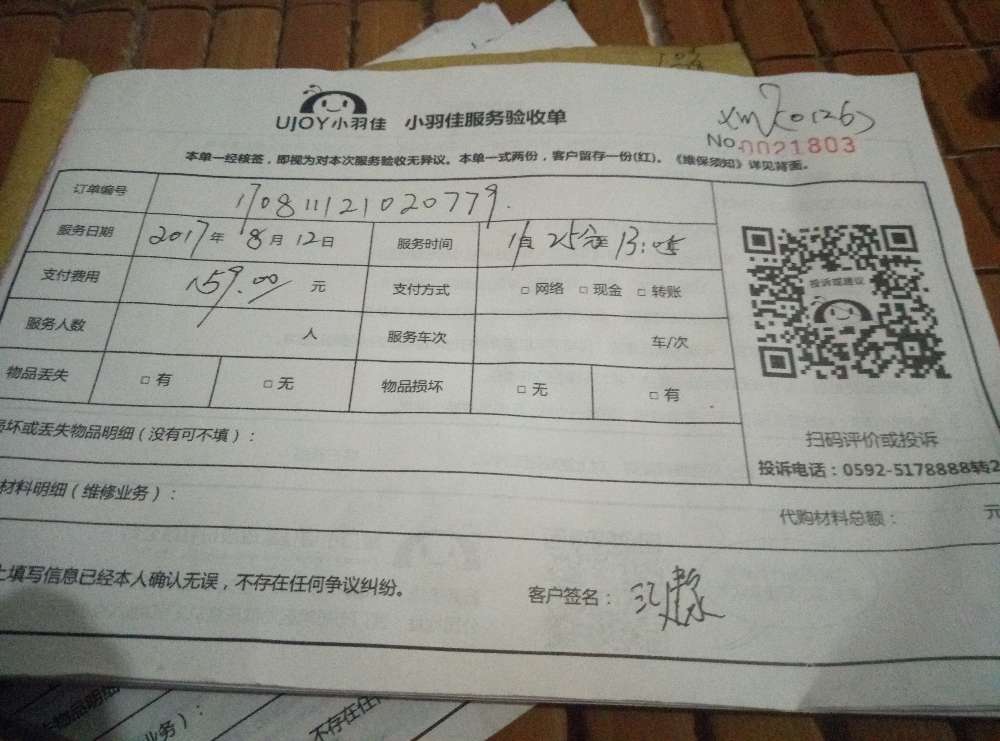 UJOY小羽佳 小羽佳服务验收单
No.0021803
本单一经核签，即视为对本次服务验收无异议。本单一式两份，客户留存一份(红)。《维保须知》详见背面。
订单编号 170811121020779
服务日期 2017年8月12日 服务时间
支付费用 159.00元 支付方式 □ 网络 □ 现金 □ 转账
投诉或建议
服务人数 人 服务车次 车/次
物品丢失 □ 有 □ 无 物品损坏 □ 无 □ 有
坏或丢失物品明细（没有可不填）：
扫码评价或投诉
投诉电话：0592-5178888转2
材料明细（维修业务）：
代购材料总额： 元
上填写信息已经本人确认无误，不存在任何争议纠纷。
客户签名：
物品明细
业务）：
不存在任